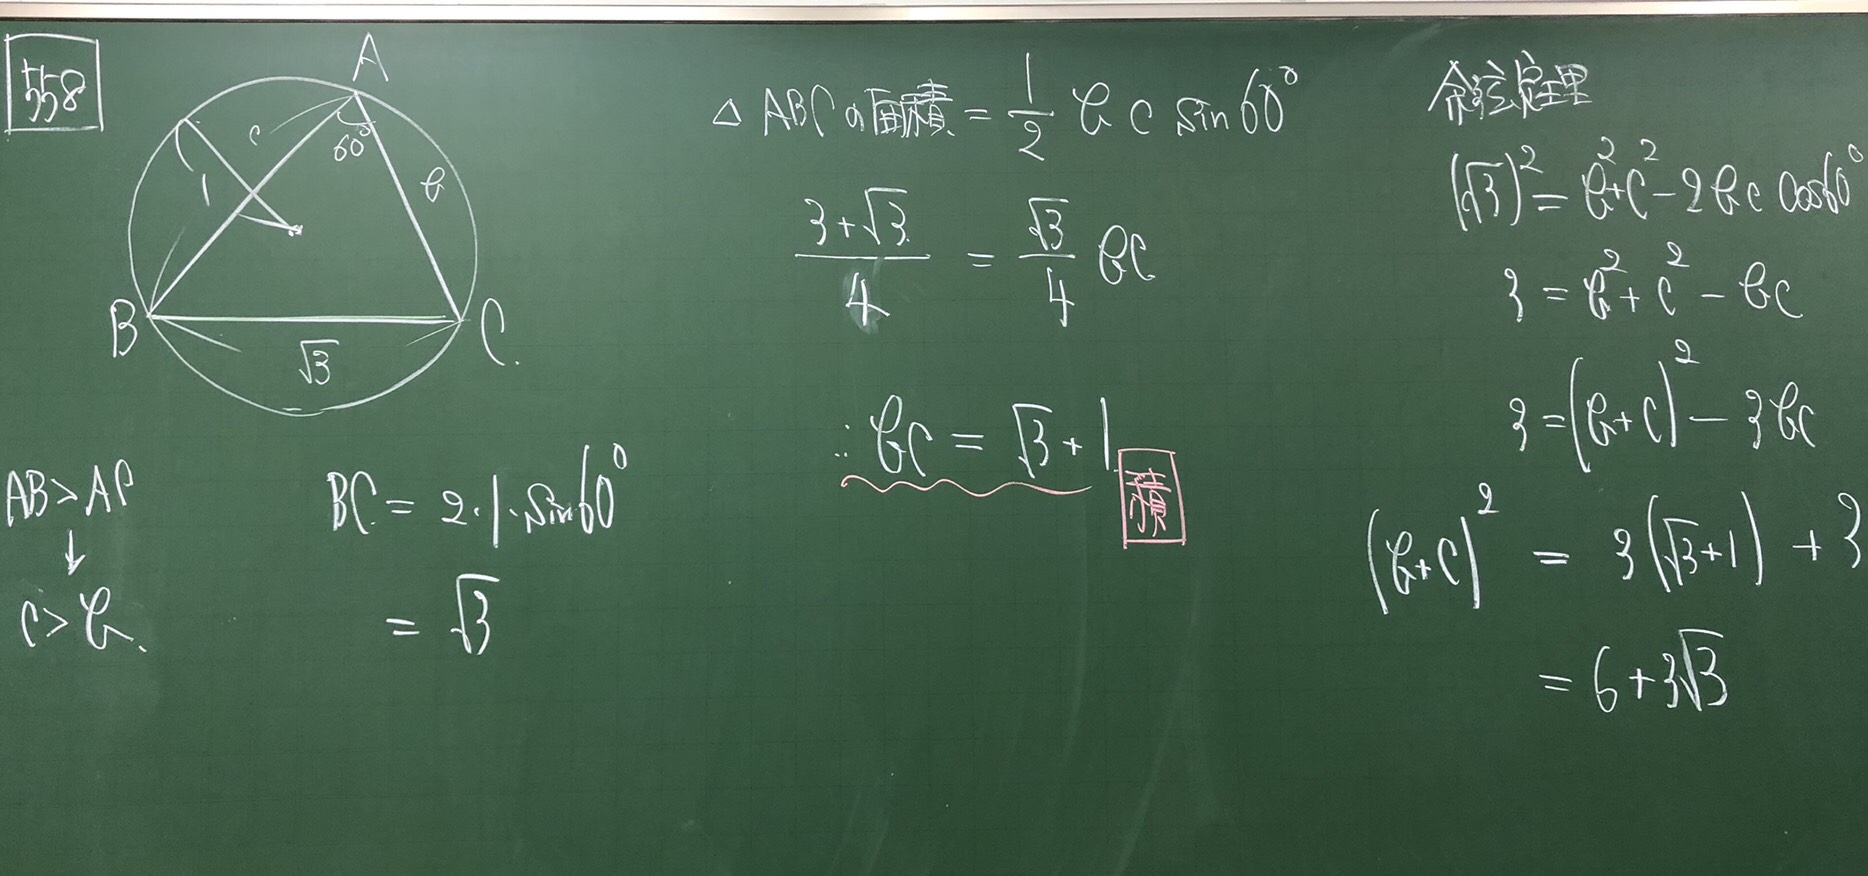 558
A
c
60°
b
1
B
C.
√3
AB > AC
↓
c > b.
BC = 2・1・sin60°
= √3
△ABCの面積 = 1/2 bc sin60°
(3+√3)/4 = √3/4 bc
∴ bc = √3+1
積
余弦定理
(√3)² = b²+c²-2bc cos60°
3 = b²+c²-bc
3 = (b+c)²-3bc
(b+c)² = 3(√3+1)+3
= 6+3√3